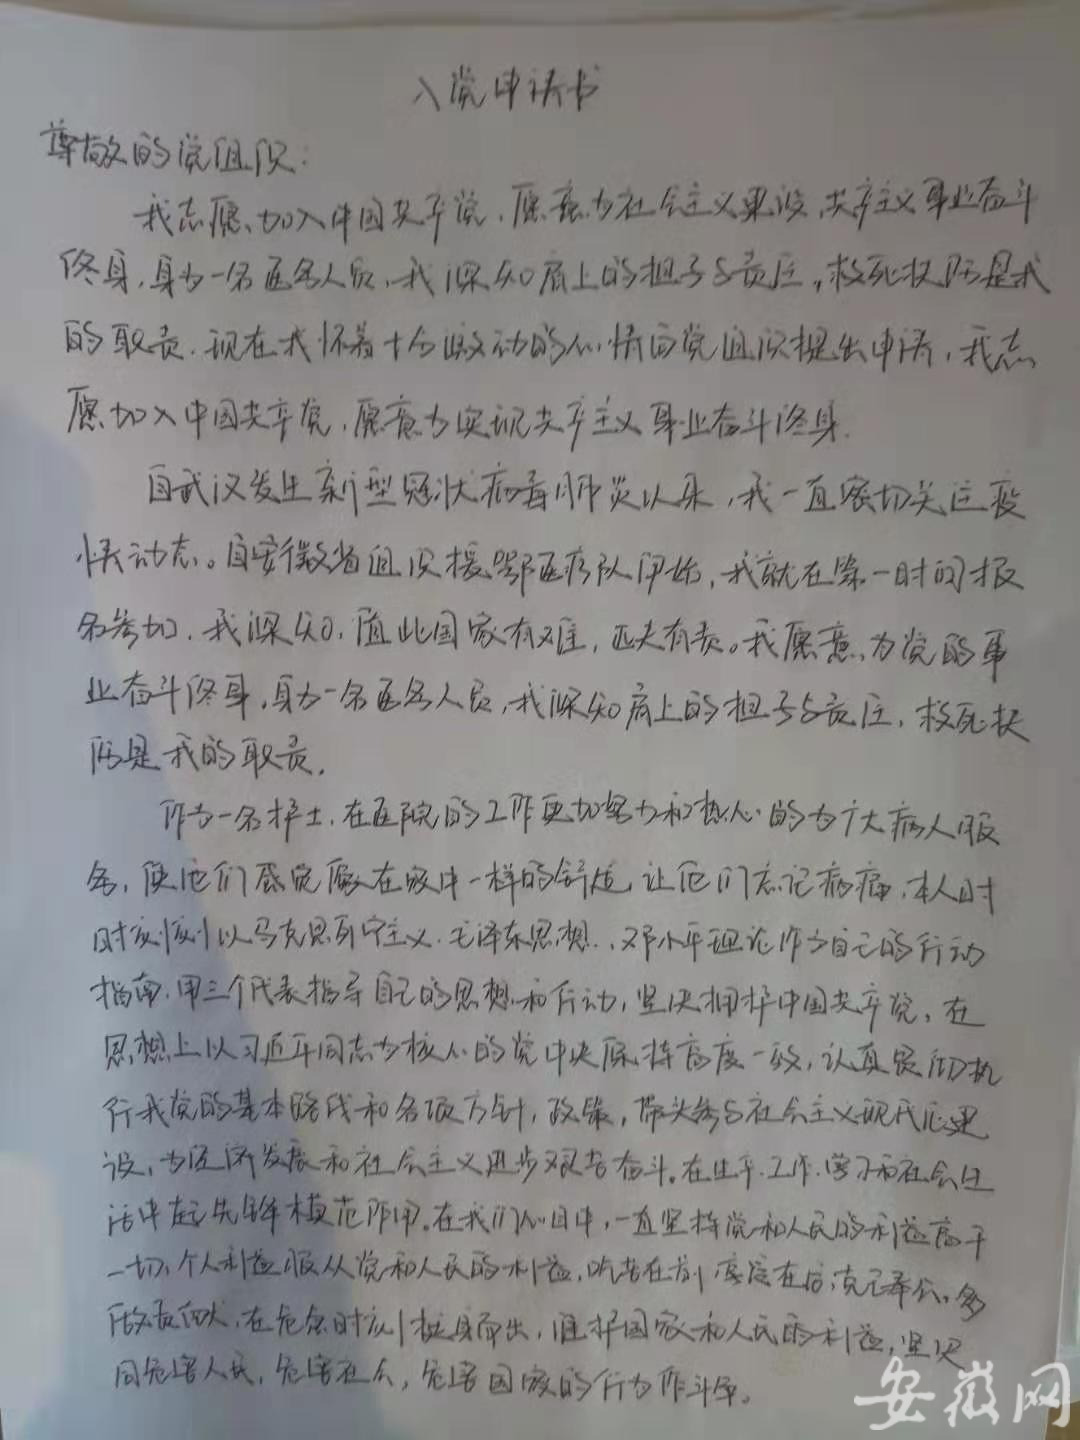 入党申请书
尊敬的党组织：
我志愿加入中国共产党，愿意为社会主义建设、共产主义事业奋斗
终身，身为一名医务人员，我深知肩上的担子与责任，救死扶伤是我
的职责，现在我怀着十分激动的心情向党组织提出申请，我志
愿加入中国共产党，愿意为实现共产主义事业奋斗终身.
自武汉发生新型冠状病毒肺炎以来，我一直密切关注疫
情动态。自安徽省组织援鄂医疗队开始，我就在第一时间报
名参加，我深知，值此国家有难，匹夫有责。我愿意为党的事
业奋斗终身，身为一名医务人员，我深知肩上的担子与责任，救死扶
伤是我的职责.
作为一名护士，在医院的工作更加努力和热心的为广大病人服
务，使他们感觉像在家中一样的舒适，让他们忘记病痛，本人时
时刻刻以马克思列宁主义、毛泽东思想、邓小平理论作为自己的行动
指南，用三个代表指导自己的思想和行动，坚决拥护中国共产党，在
思想上以习近平同志为核心的党中央保持高度一致，认真贯彻执
行我党的基本路线和各项方针，政策，带头参与社会主义现代化建
设，为经济发展和社会主义进步艰苦奋斗。在生产、工作、学习和社会生
活中起先锋模范作用。在我们心目中，一直坚持党和人民的利益高于
一切，个人利益服从党和人民的利益，吃苦在前，享受在后，克己奉公，多
做贡献，在危急时刻挺身而出，维护国家和人民的利益，坚决
同危害人民，危害社会，危害国家的行为作斗争。
安徽网